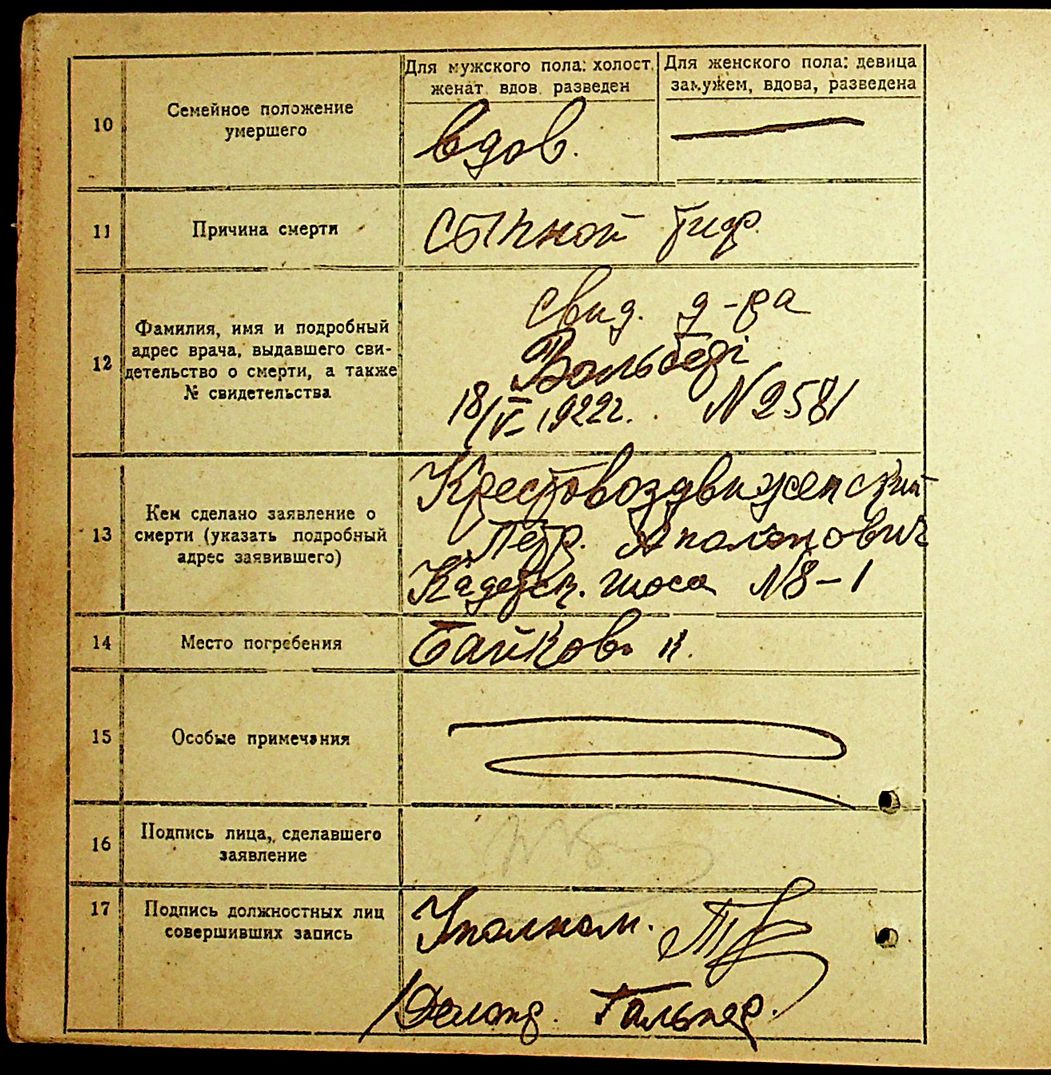 Для мужского пола: холост, женат, вдов, разведен
Для женского пола: девица замужем, вдова, разведена
10
Семейное положение
умершего
вдов.
11
Причина смерти
сыпной тиф
12
Фамилия, имя и подробный
адрес врача, выдавшего сви-
детельство о смерти, а также
№ свидетельства
свид. д-ра
18/V 1922г. N 2581
13
Кем сделано заявление о
смерти (указать подробный
адрес заявившего)
Крестовоздвиженский
Петр. Аполонович
Кадетск. шоса N8-1
14
Место погребения
Байков. к.
15
Особые примечания
16
Подпись лица, сделавшего
заявление
17
Подпись должностных лиц
совершивших запись
Уполном.
Делопр. Гальпер.